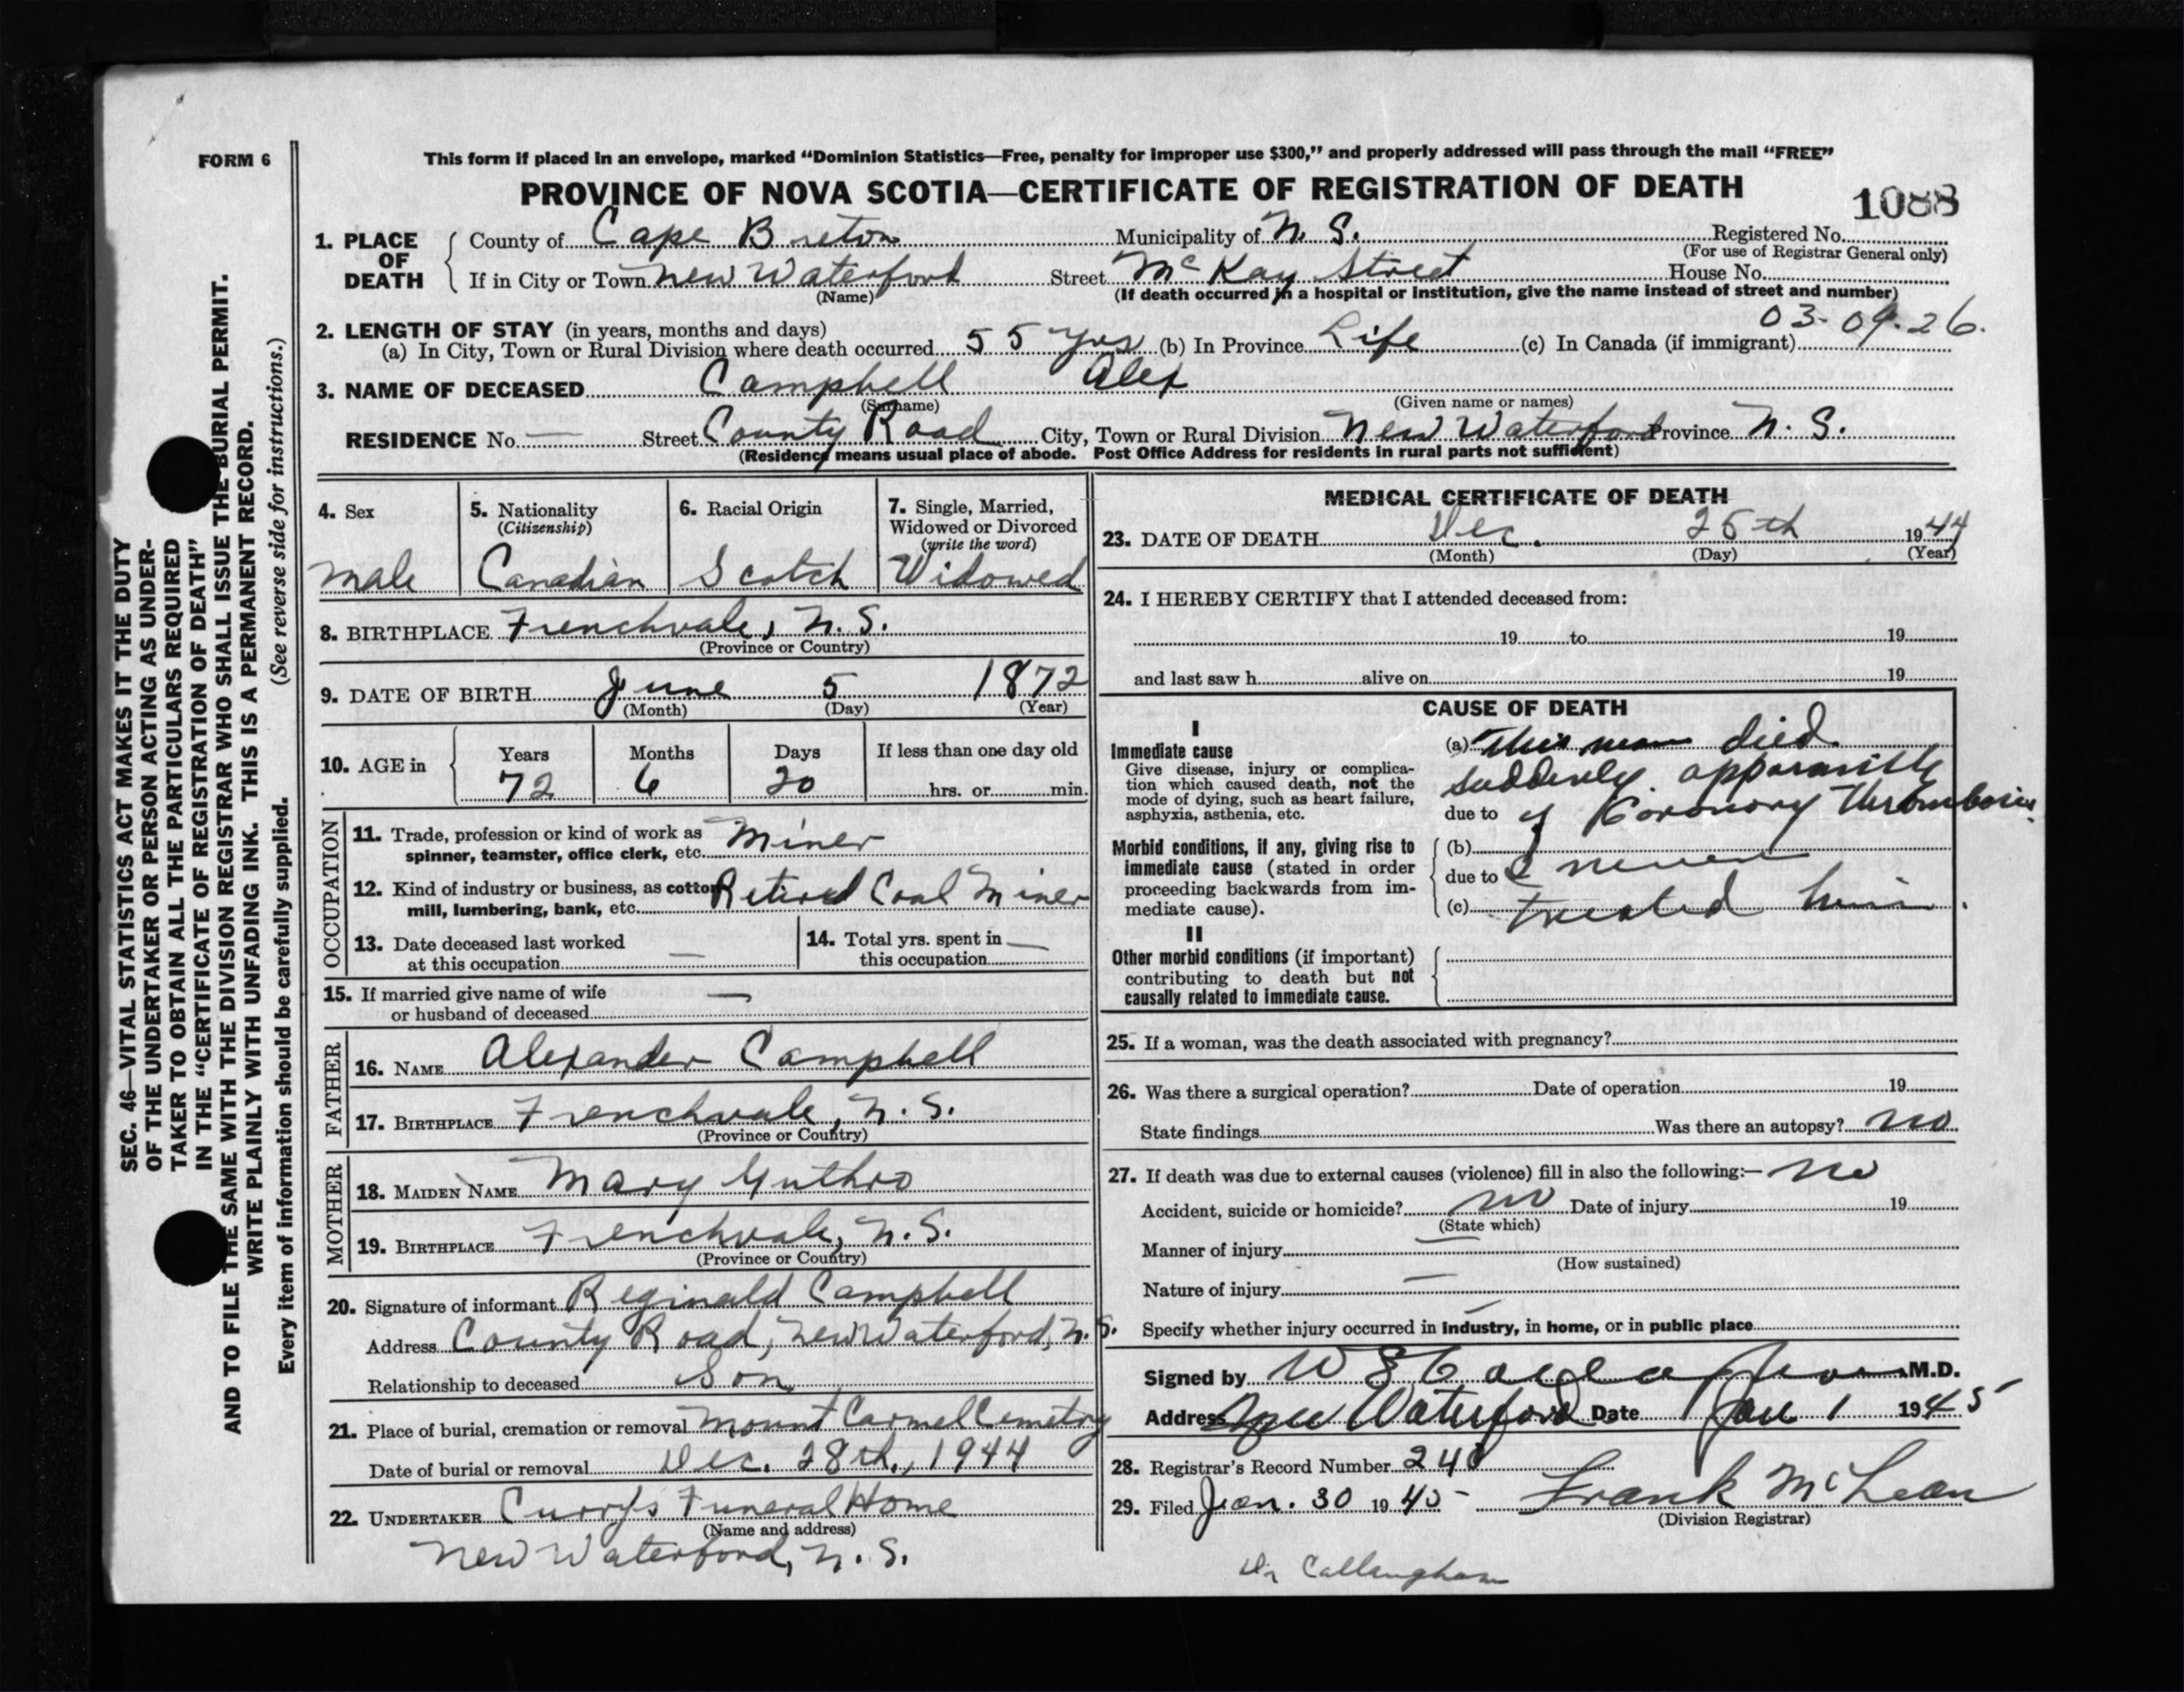 FORM 6
This form if placed in an envelope, marked "Dominion Statistics—Free, penalty for improper use $300," and properly addressed will pass through the mail "FREE"
PROVINCE OF NOVA SCOTIA—CERTIFICATE OF REGISTRATION OF DEATH
1088
1. PLACE OF DEATH
County of Cape Breton Municipality of N. S. Registered No.
(For use of Registrar General only)
If in City or Town New Waterford Street McKay Street House No.
(Name) (If death occurred in a hospital or institution, give the name instead of street and number)
03-09-26.
2. LENGTH OF STAY (in years, months and days)
(a) In City, Town or Rural Division where death occurred 55 yrs (b) In Province Life (c) In Canada (if immigrant)
3. NAME OF DECEASED Campbell Alex
(Surname) (Given name or names)
RESIDENCE No. — Street County Road City, Town or Rural Division New Waterford Province N. S.
(Residence means usual place of abode. Post Office Address for residents in rural parts not sufficient)
4. Sex
male
5. Nationality
(Citizenship)
Canadian
6. Racial Origin
Scotch
7. Single, Married,
Widowed or Divorced
(write the word)
Widowed
8. BIRTHPLACE Frenchvale, N. S.
(Province or Country)
9. DATE OF BIRTH June 5 1872
(Month) (Day) (Year)
10. AGE in
Years Months Days If less than one day old
72 6 20 hrs. or min.
OCCUPATION
11. Trade, profession or kind of work as
spinner, teamster, office clerk, etc. Miner
12. Kind of industry or business, as cotton
mill, lumbering, bank, etc. Retired Coal Miner
13. Date deceased last worked
at this occupation —
14. Total yrs. spent in
this occupation —
15. If married give name of wife
or husband of deceased —
FATHER
16. NAME Alexander Campbell
17. BIRTHPLACE Frenchvale, N. S.
(Province or Country)
MOTHER
18. MAIDEN NAME Mary Guthro
19. BIRTHPLACE Frenchvale, N. S.
(Province or Country)
20. Signature of informant Reginald Campbell
Address County Road, New Waterford, N. S.
Relationship to deceased Son
21. Place of burial, cremation or removal Mount Carmel Cemetry
Date of burial or removal Dec. 28th., 1944
22. UNDERTAKER Curry's Funeral Home
(Name and address)
New Waterford, N. S.
MEDICAL CERTIFICATE OF DEATH
23. DATE OF DEATH Dec. 25th 1944
(Month) (Day) (Year)
24. I HEREBY CERTIFY that I attended deceased from:
19 to 19
and last saw h alive on 19
CAUSE OF DEATH
I
Immediate cause
Give disease, injury or complica-
tion which caused death, not the
mode of dying, such as heart failure,
asphyxia, asthenia, etc.
(a) This man died
suddenly apparently
due to of Coronary Thrombosis.
Morbid conditions, if any, giving rise to
immediate cause (stated in order
proceeding backwards from im-
mediate cause).
(b)
due to I never
(c) treated him.
II
Other morbid conditions (if important)
contributing to death but not
causally related to immediate cause.
25. If a woman, was the death associated with pregnancy?
26. Was there a surgical operation? Date of operation 19
State findings Was there an autopsy? no
27. If death was due to external causes (violence) fill in also the following:— no
Accident, suicide or homicide? no Date of injury 19
(State which)
Manner of injury —
(How sustained)
Nature of injury —
Specify whether injury occurred in industry, in home, or in public place —
Signed by W E M.D.
Address New Waterford Date Jan 1 1945
28. Registrar's Record Number
29. Filed Jan. 30 1945 Frank McLean
(Division Registrar)
Dr Callaugham
SEC. 46—VITAL STATISTICS ACT MAKES IT THE DUTY
OF THE UNDERTAKER OR PERSON ACTING AS UNDER-
TAKER TO OBTAIN ALL THE PARTICULARS REQUIRED
IN THE "CERTIFICATE OF REGISTRATION OF DEATH"
AND TO FILE THE SAME WITH THE DIVISION REGISTRAR WHO SHALL ISSUE THE BURIAL PERMIT.
WRITE PLAINLY WITH UNFADING INK. THIS IS A PERMANENT RECORD.
Every item of information should be carefully supplied. (See reverse side for instructions.)